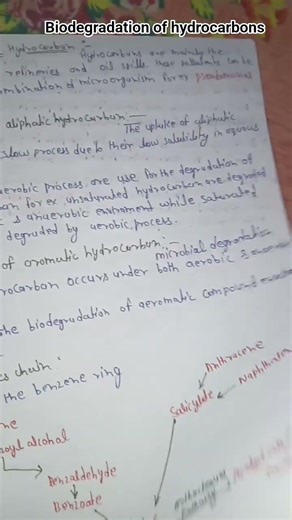 Biodegradation of hydrocarbons
= Hydrocarbon :- Hydrocarbons are mainly the
refineries and oil spills these pollutants can be
ombination of microorganism for ex pseudomonas
aliphatic hydrocarbon :-
The uptake of aliphatic
slow process due to their low solubility in aqueous
aerobic process, are use for the degradation of
for ex, unsaturated hydrocarbon are degraded
anaerobic enviroment while saturated
degraded by aerobic process.
of aromatic hydrocarbon :-
microbial degradation
rocarbon occurs under both aerobic &
the biodegradation of aeromatic compound
chain :
the benzene ring
Anthracene
Naphthalene
Salicylate
ne
oyl alcohol
Benzaldehyde
Benzoate